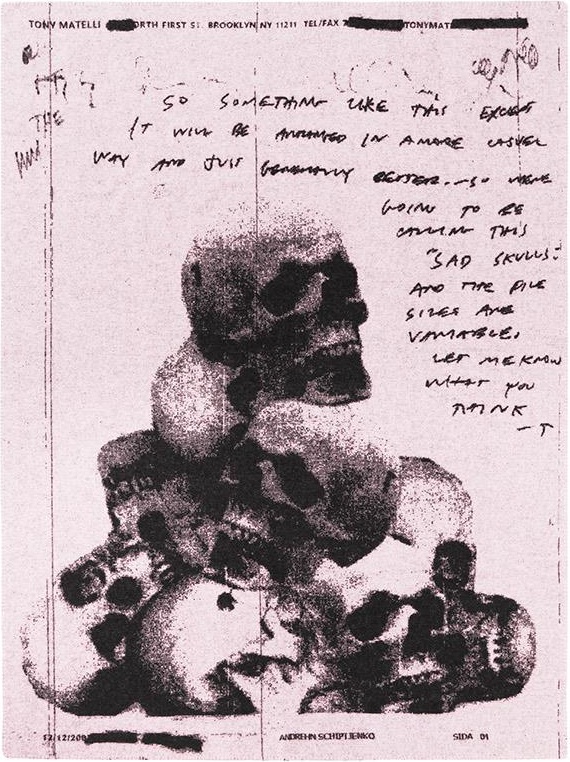 TONY MATELLI ORTH FIRST ST. BROOKLYN NY 11211 TEL/FAX 7 TONYMAT
THE
SO SOMETHING LIKE THIS EXCEPT
IT WILL BE ARRANGED IN A MORE CASUAL
WAY AND JUST GENERALLY BETTER. - SO WERE
GOING TO BE
CALLING THIS
"SAD SKULLS"
AND THE PILE
SIZES ARE
VARIABLE.
LET ME KNOW
WHAT YOU
THINK
- T
12/12/200 ANDREHN SCHIPTJENKO SIDA 01